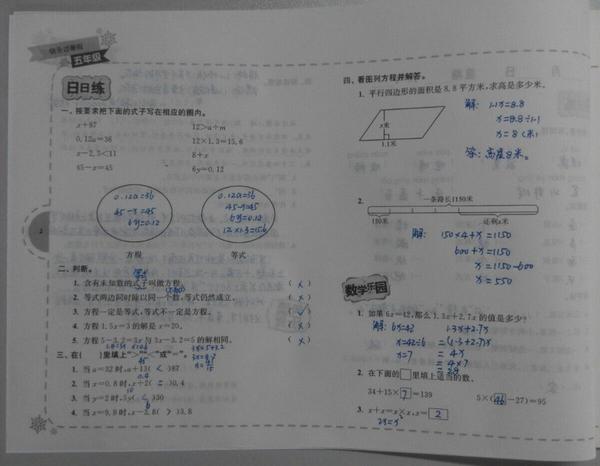 快乐过暑假
五年级
日日练
一、按要求把下面的式子写在相应的圈内。
x+87 12>a÷m
0.12a=36 12×1.3=15.6
x-2.5<11 8+x
45-x=45 6y=0.12
0.12a=36
45-x=45
6y=0.12
0.12a=36
45-x=45
6y=0.12
12×1.3=15.6
方程 等式
二、判断。
1. 含有未知数的式子叫做方程。 (×)
2. 等式两边同时除以同一个数,等式仍然成立。 (×)
3. 方程一定是等式,等式不一定是方程。 (√)
4. 1.5x=3的解是x=20。 (×)
5. 方程5-3.2=3x与3x-3.2=5的解相同。 (×)
三、在( )里填上“>”“<”或“=”。
1. 当a=32时,a+13(<)387
2. 当x=0.8时,x÷2(=)0.4
3. 当y=2时,5y(<)30
4. 当x=9.8时,x-2.8(>)3.8
2
四、看图列方程并解答。
1. 平行四边形的面积是8.8平方米,求高是多少米。
x米
1.1米
解: 1.1x=8.8
x=8.8÷1.1
x=8(米)
答:高度8米。
2.
一条路长1150米
150米 还剩x米
解: 150×4+x=1150
600+x=1150
x=1150-600
x=550
数学乐园
1. 如果6x=42,那么1.3x+2.7x的值是多少?
解: 6x=42 1.3x+2.7x
x=42÷6 =(1.3+2.7)x
x=7 =4x
=4×7
=28
2. 在下面的□里填上适当的数。
34+15×7=139 5×(46-27)=95
3. x+x=x×x,x=2
2x=x²